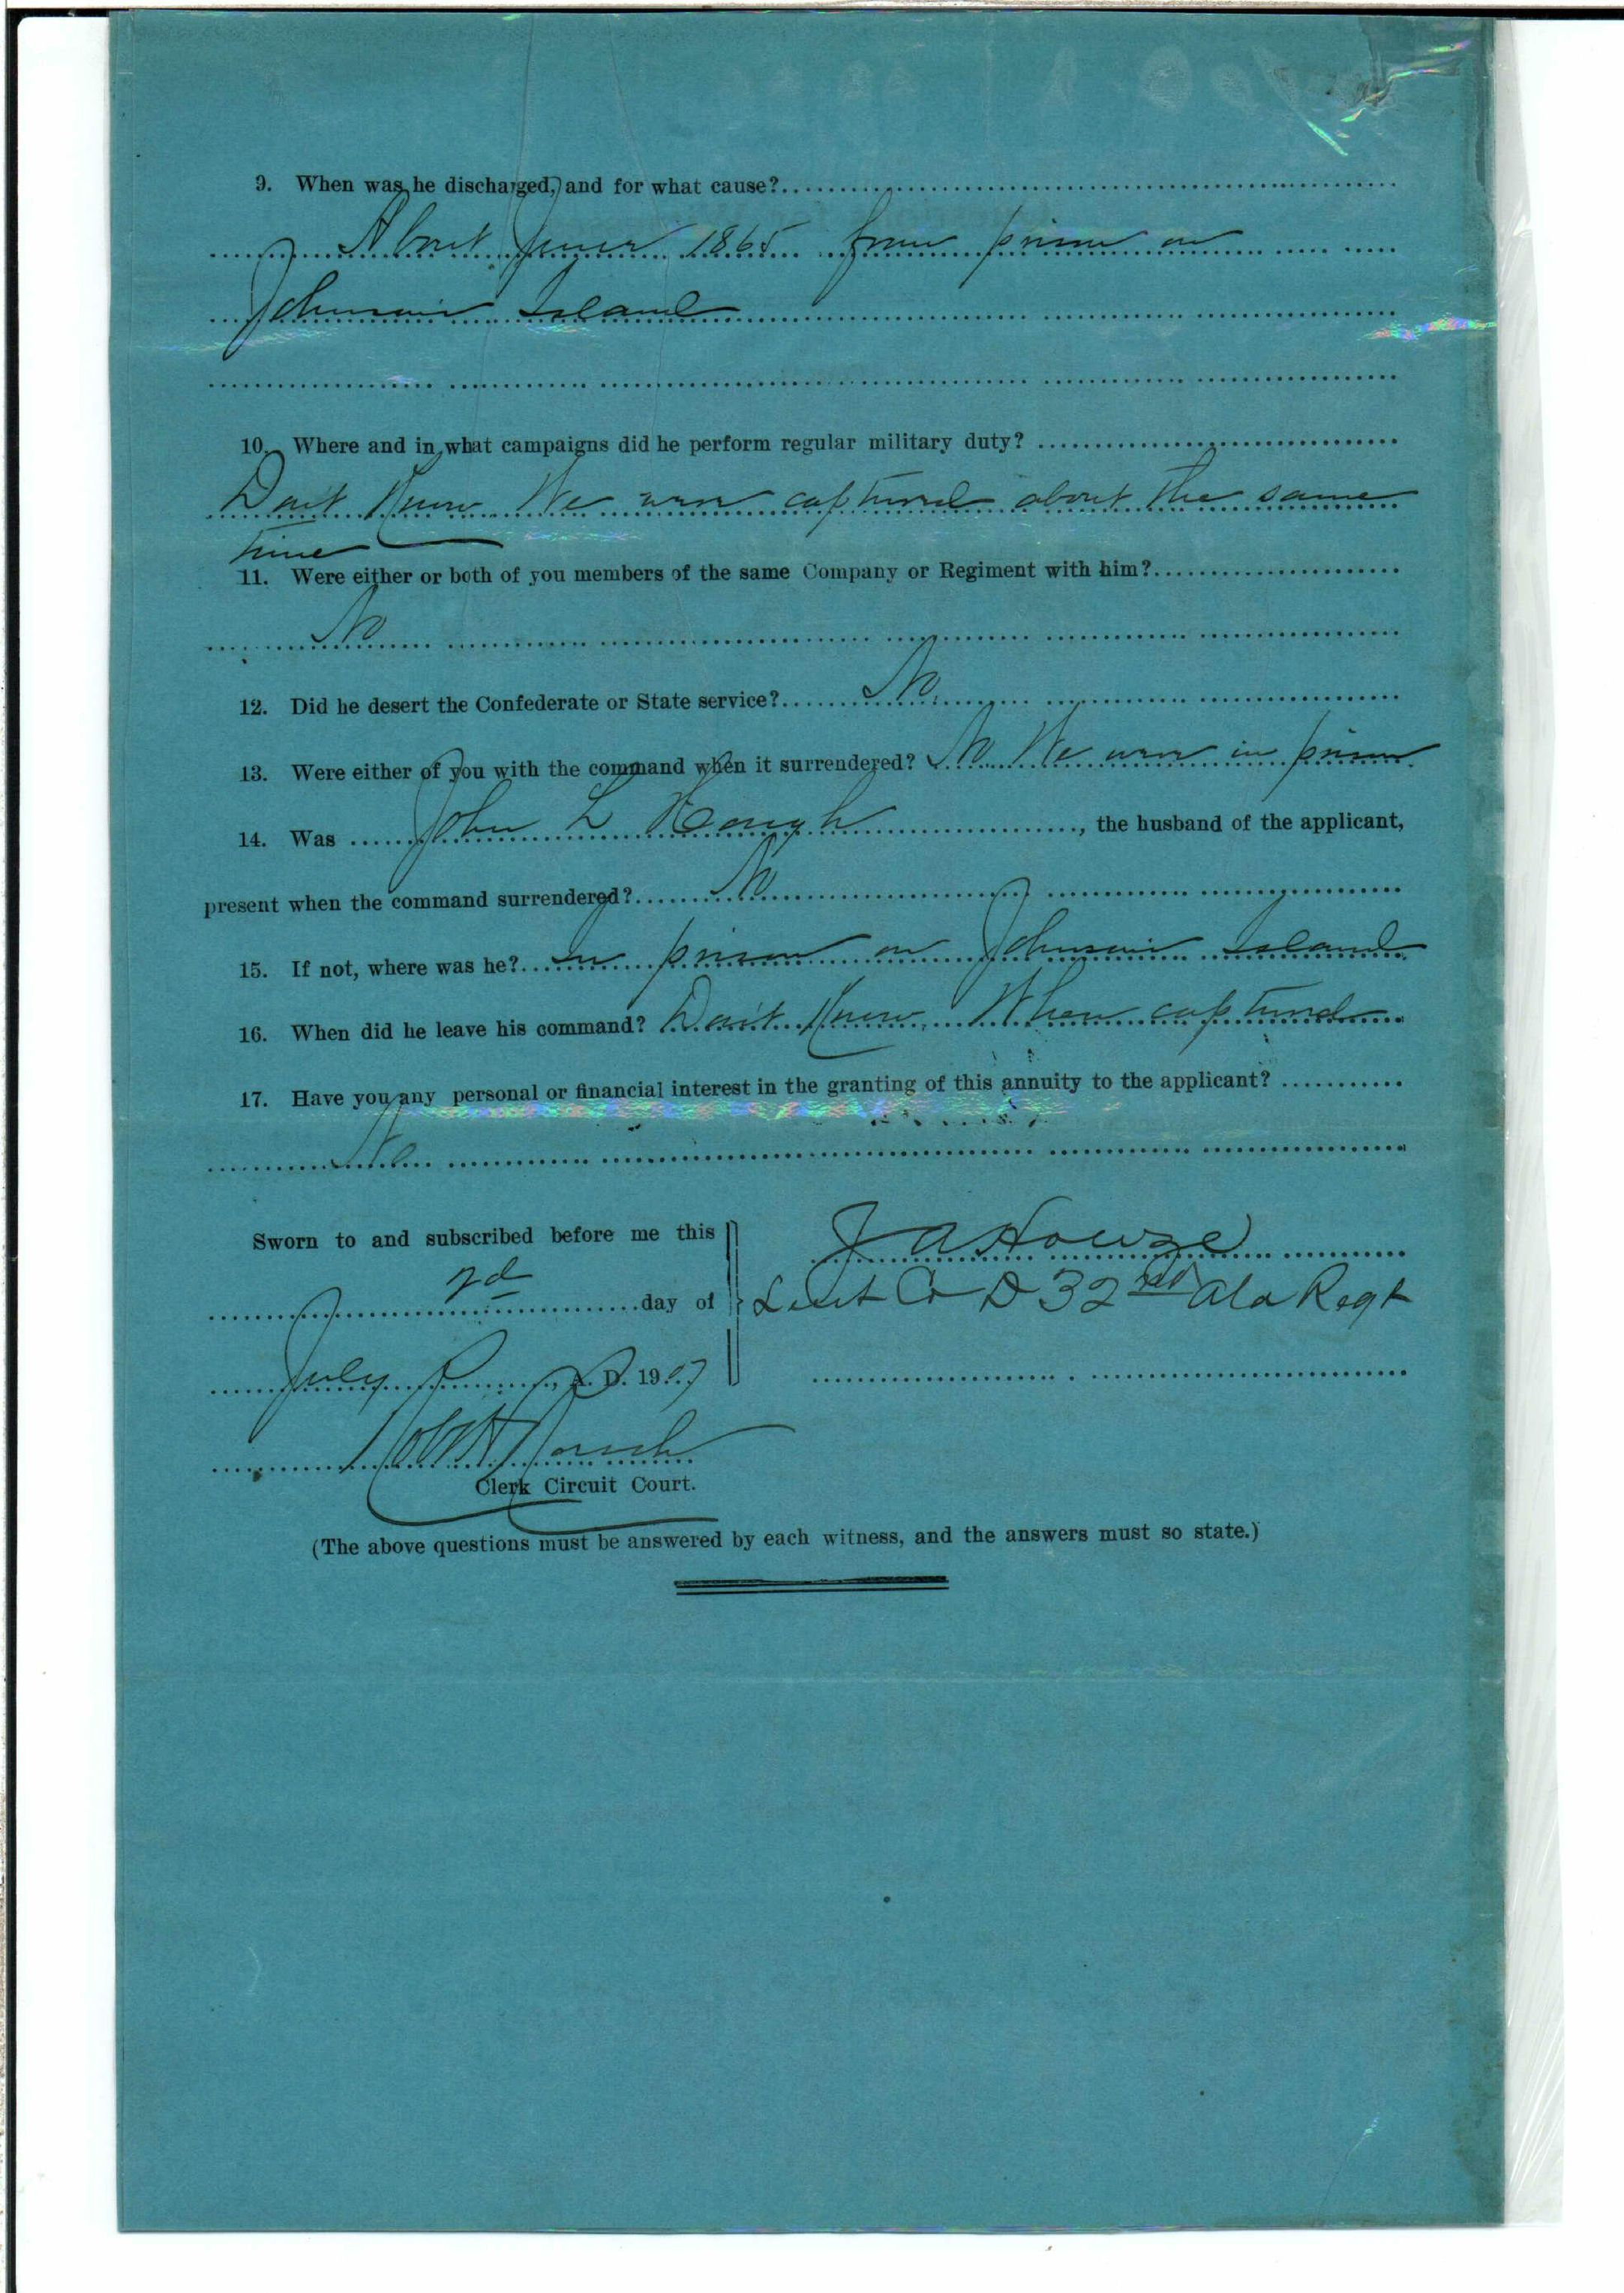 9. When was he discharged, and for what cause?
About June 1865 from prison on
Johnson Island
10. Where and in what campaigns did he perform regular military duty?
Dont Know We were captured about the same
time
11. Were either or both of you members of the same Company or Regiment with him?
No
12. Did he desert the Confederate or State service? No
13. Were either of you with the command when it surrendered? No We were in prison
14. Was John L Hough, the husband of the applicant,
present when the command surrendered? No
15. If not, where was he? In prison on Johnson Island
16. When did he leave his command? Dont Know. When captured
17. Have you any personal or financial interest in the granting of this annuity to the applicant?
No
Sworn to and subscribed before me this
2d day of
July, A. D. 1907
J A Howze
Lieut Co D 32nd Ala Regt
Clerk Circuit Court.
(The above questions must be answered by each witness, and the answers must so state.)